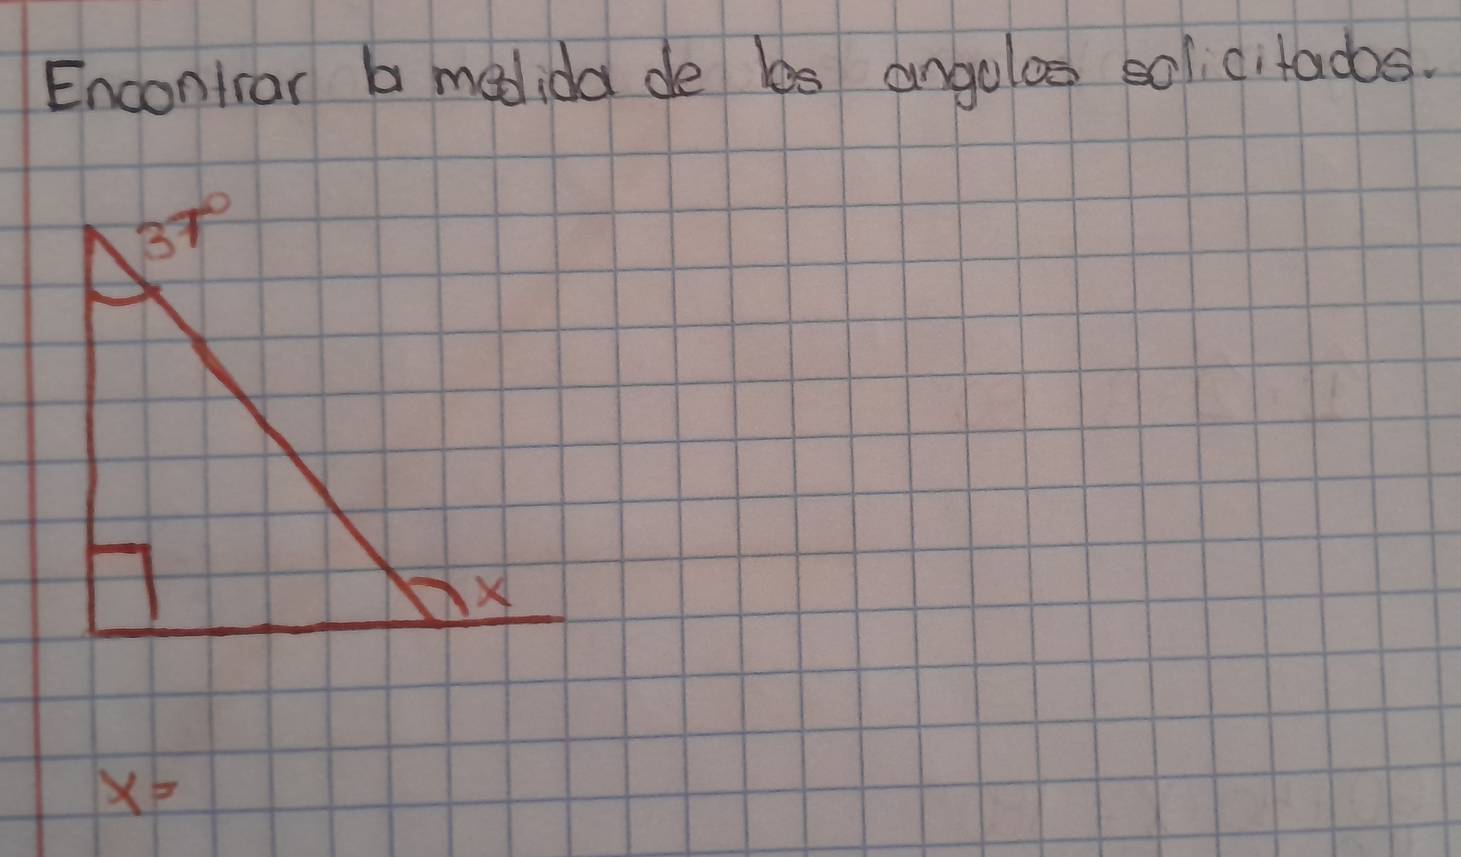 Encontrar la medida de los angulos solicitados.
37°
x
x =